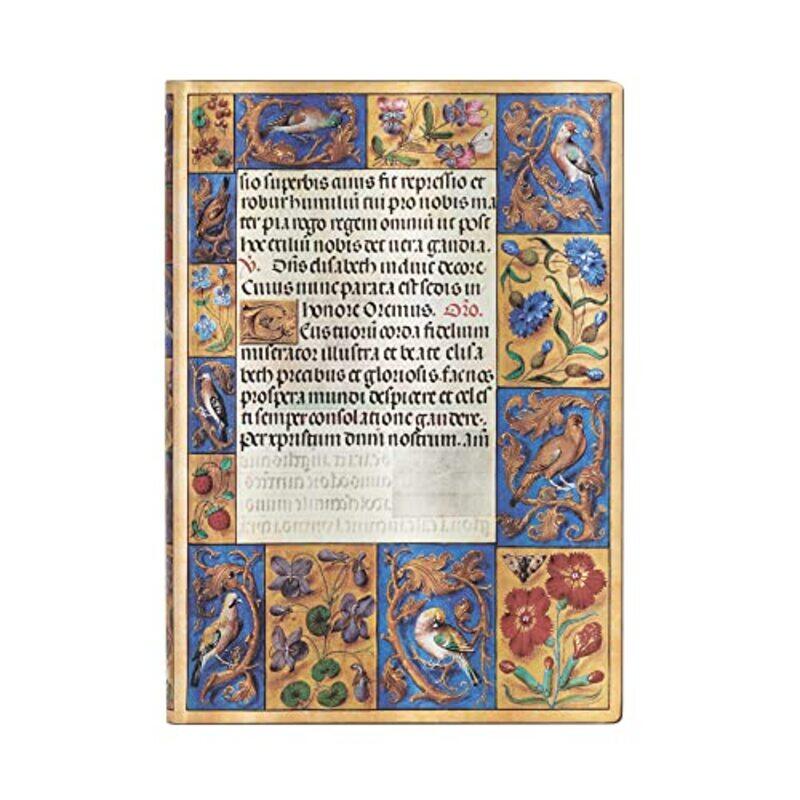 sio superbis cuius fit repressio et
robur humiliū cui pro nobis ma
ter pia rogo regem omniū ut post
hoc exiliū nobis det uera gaudia.
V. Ora elisabeth indue decore
Cuius nunc parata est sedis in
honore Oremus. Orō.
Eus tuorū corda fidelium
miserator illustra et beate elisa
beth precibus et gloriosis. fac nos
prospera mundi despicere et celes
ti semper consolatione gaudere.
Per xpristum dnm̄ nostrum. am̄